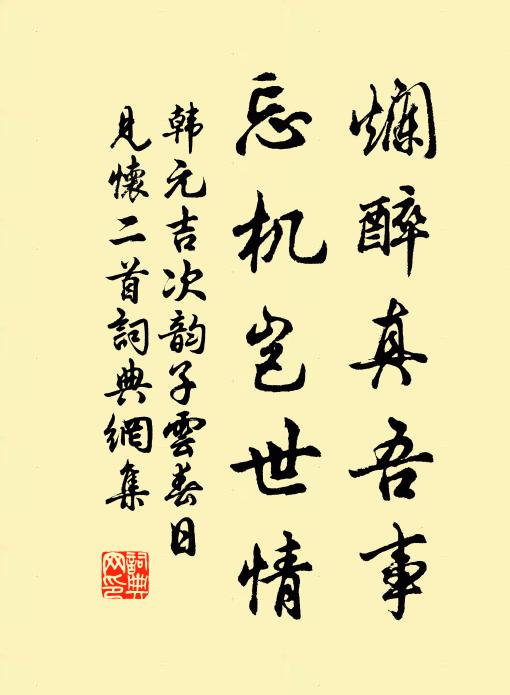 爛醉真吾事
忘机岂世情
韩元吉次韵子雲春日
見懷二首詞典網集
詞典网印